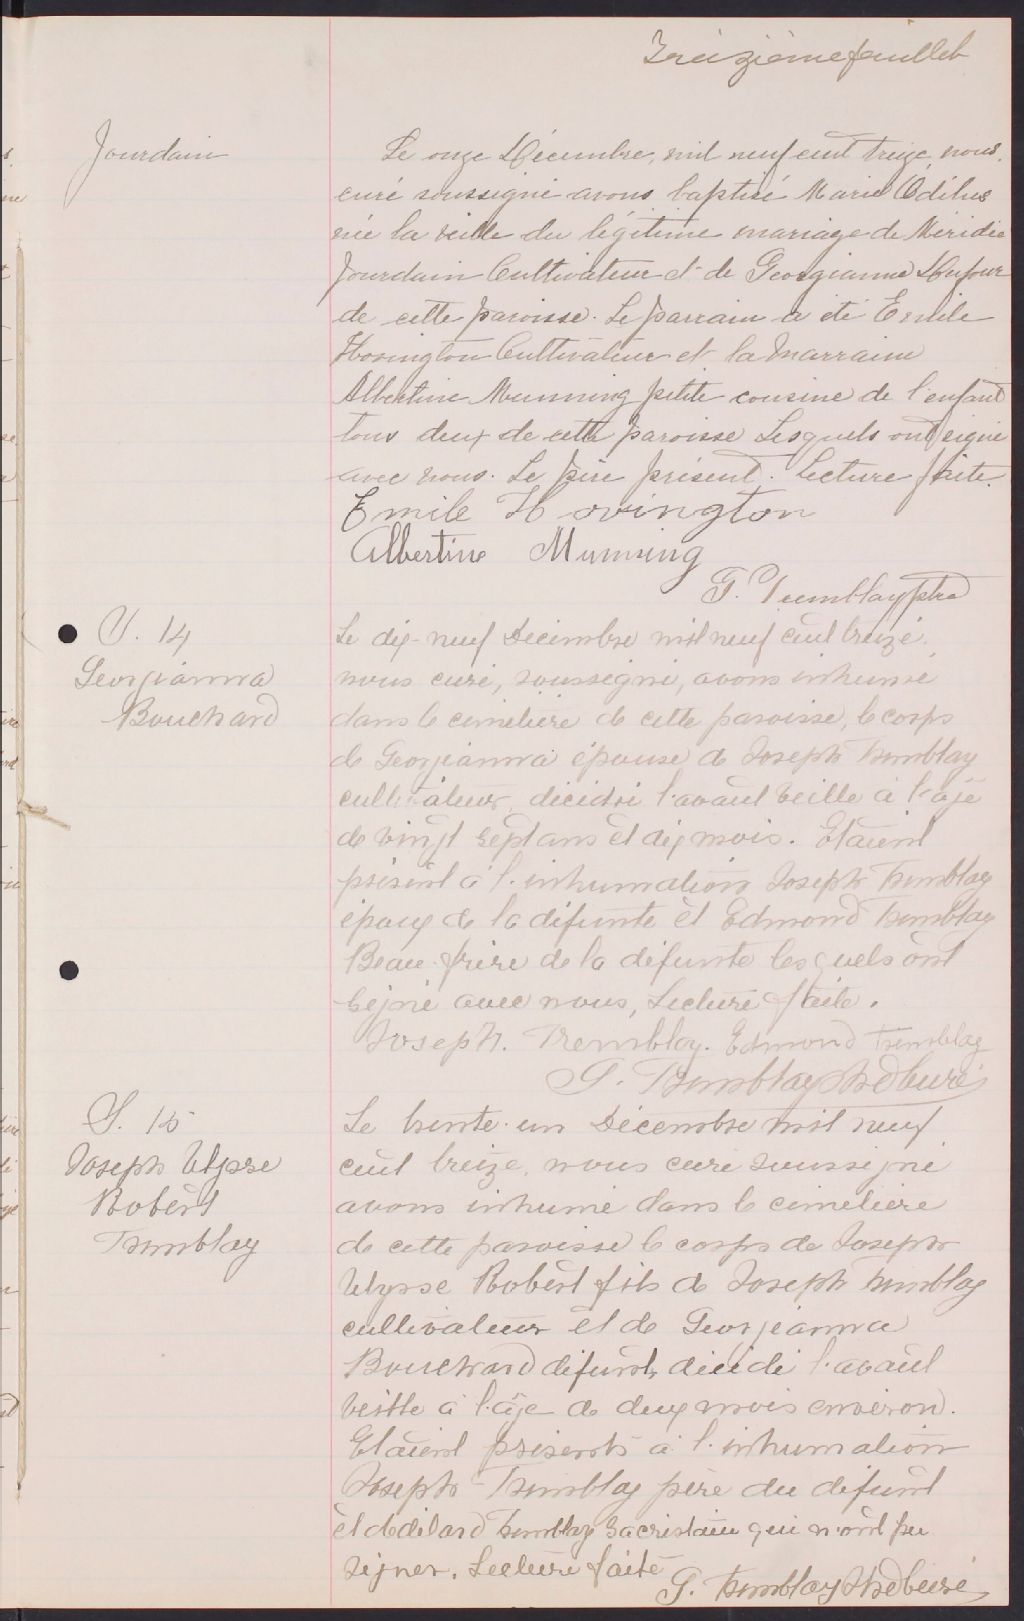 Treizième feuillet
Jourdain
Le onze Décembre, mil neuf cent treize, nous,
curé soussigné avons baptisé Marie Odélie
née la veille du légitime mariage de Méridée
Jourdain Cultivateur et de Georgianne Dufour
de cette paroisse. Le parrain a été Emile
Hovington Cultivateur et la Marraine
Albertine Munning petite cousine de l'enfant
tous deux de cette paroisse Lesquels ont signé
avec nous. Le père présent. Lecture faite.
Emile Hovington
Albertine Munning
G. Tremblay ptre
S. 14
Georgianna
Bouchard
Le dix-neuf Décembre mil neuf cent treize,
nous curé, soussigné, avons inhumé
dans le cimetière de cette paroisse, le corps
de Georgianna épouse de Joseph Tremblay
cultivateur, décédée l'avant veille à l'age
de vingt sept ans et dix mois. Etaient
présent à l'inhumation Joseph Tremblay
époux de la défunte et Edmond Tremblay
Beau-frère de la défunte les quels ont
signé avec nous, Lecture faite.
Joseph. Tremblay. Edmond Tremblay
G. Tremblay Ptre Curé
S. 15
Joseph Ulysse
Robert
Tremblay
Le trente-un Décembre mil neuf
cent treize, nous curé soussigné
avons inhumé dans le cimetière
de cette paroisse le corps de Joseph
Ulysse Robert fils de Joseph Tremblay
cultivateur et de Georgeanna
Bouchard défunte, décédé l'avant
veille à l'âge de deux mois environ.
Etaient présents à l'inhumation
Joseph Tremblay père du défunt
et Tremblay Sacristain qui n'ont pu
signer. Lecture faite
G. Tremblay Ptre Curé